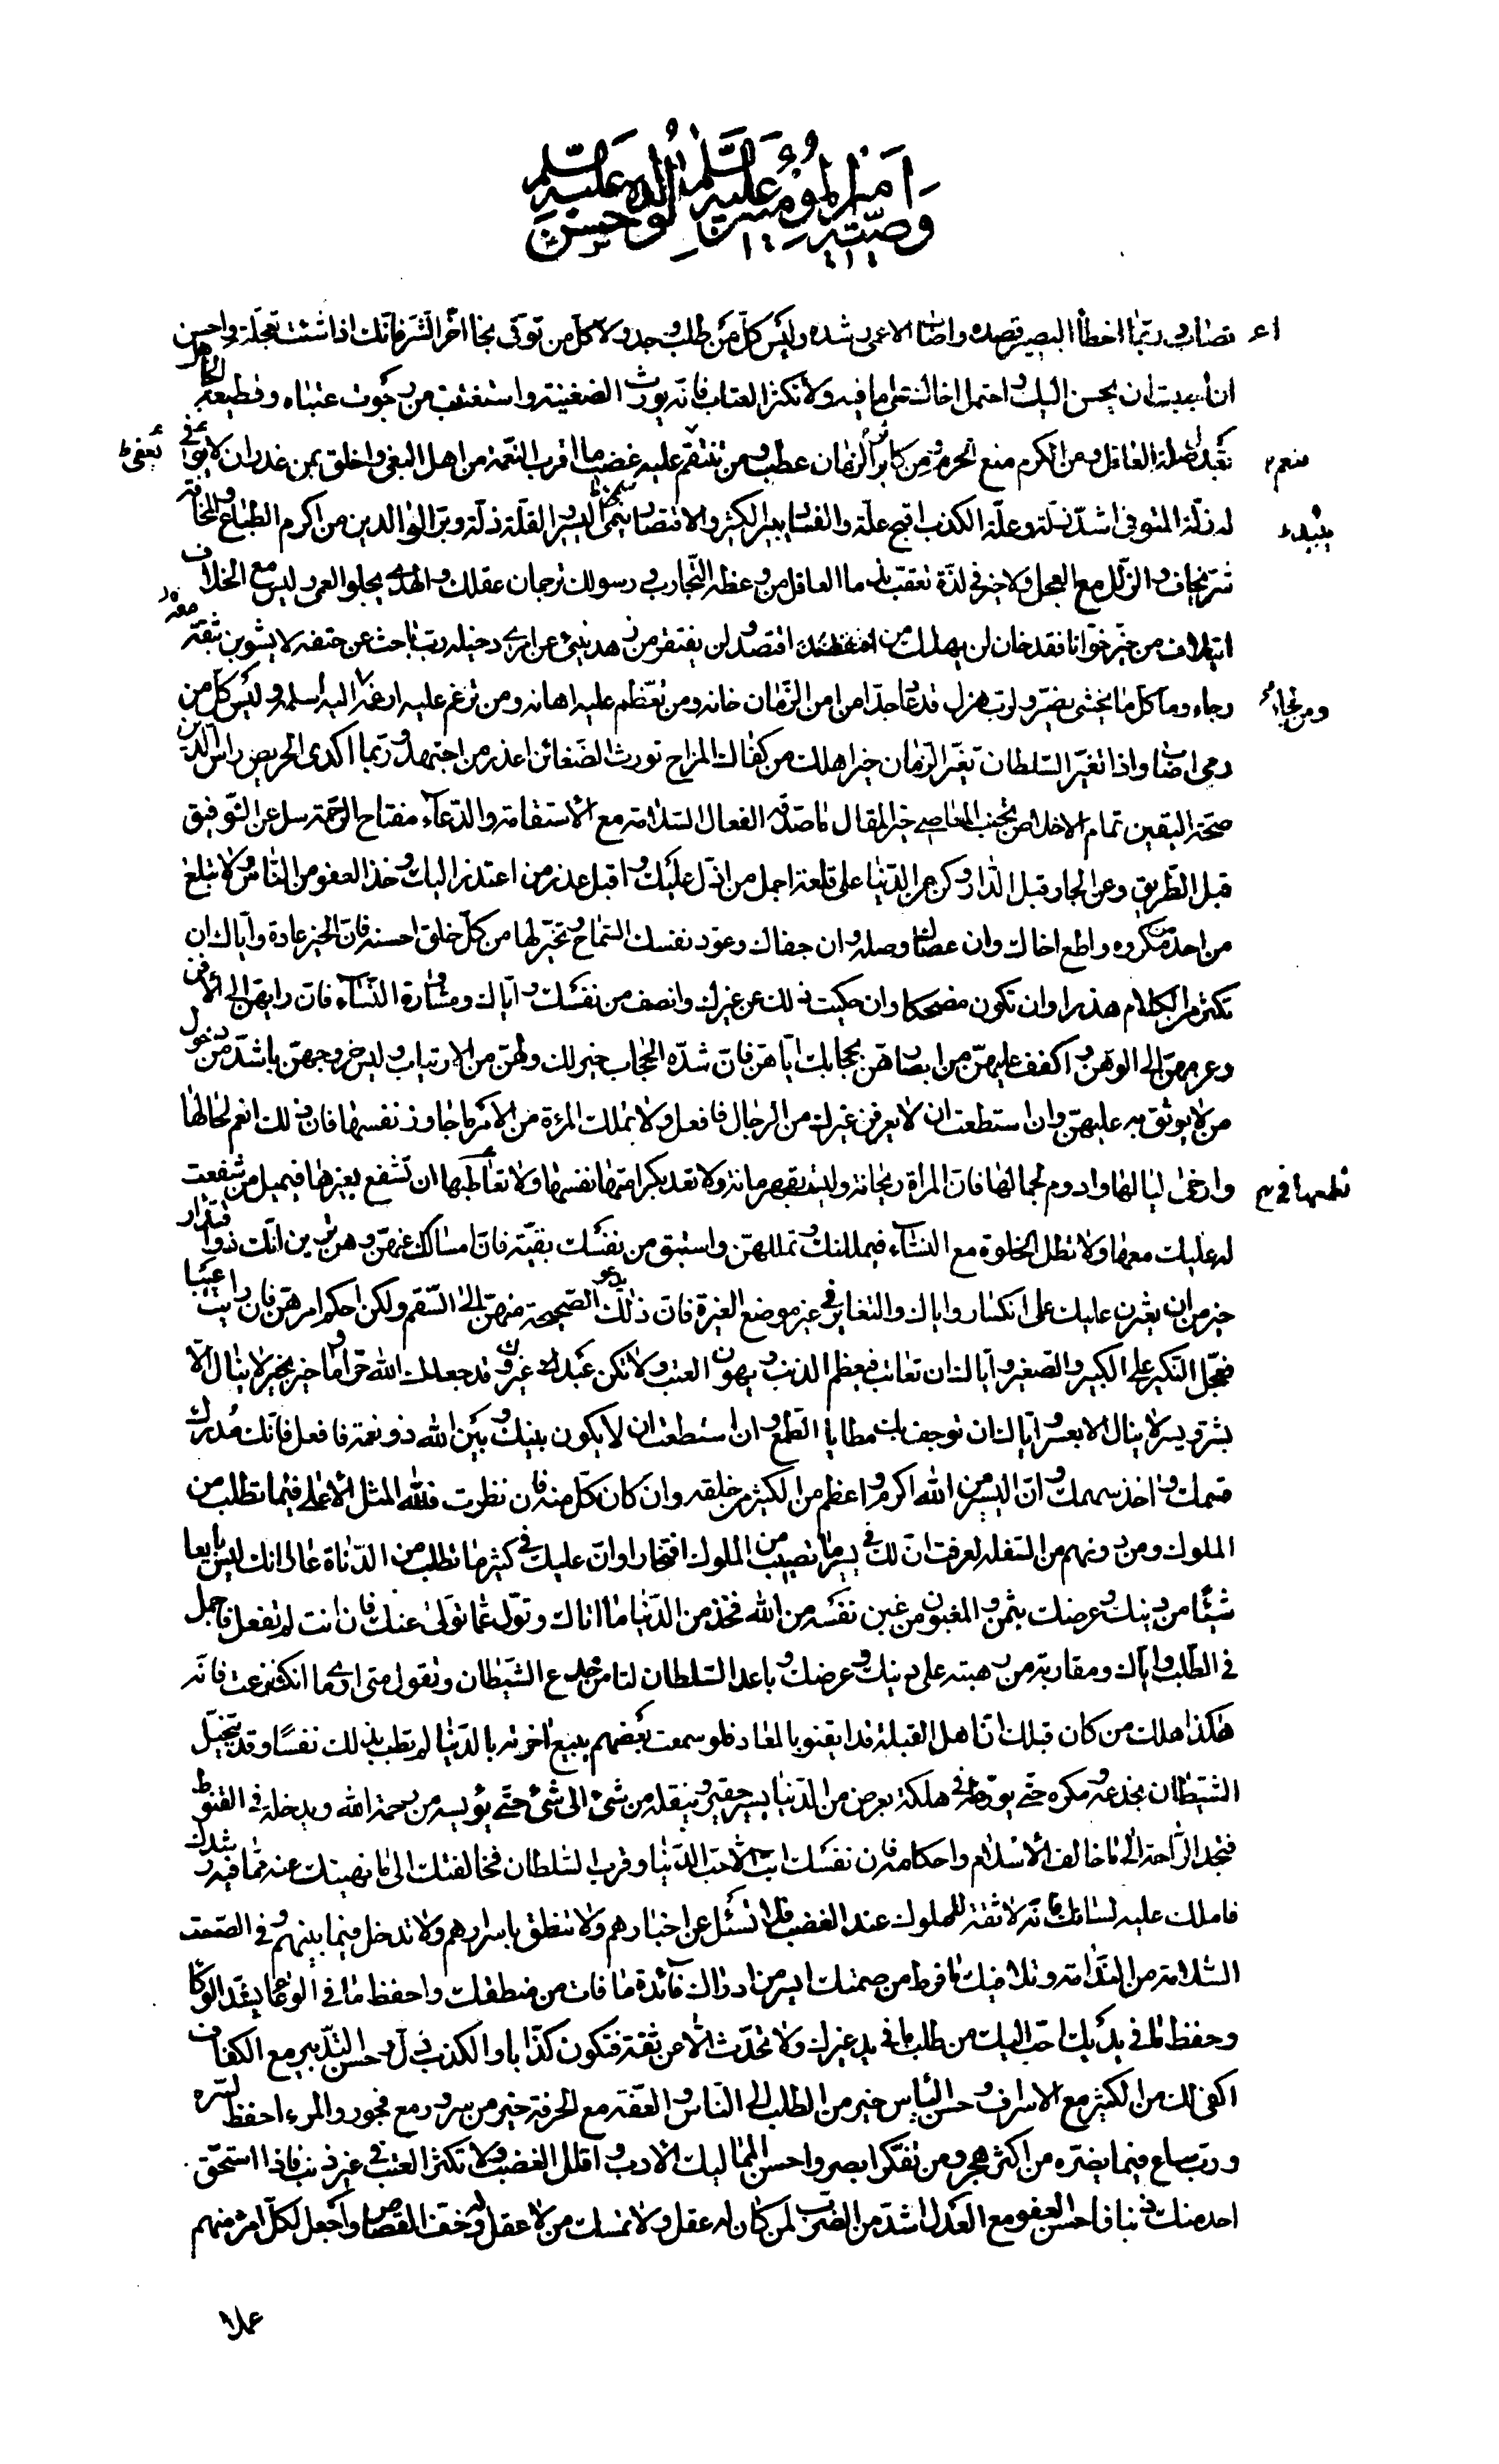 وصيته امير المؤمنين عليه السلم لولده حسن عليه السلم
تصاب وربّما اخطأ البصير قصده واصاب الاعمى رشده وليس كلّ من طلب وجد ولا كلّ من توقّى نجا اخّر الشرّ فانّك اذا شئت تعجّلته واحسن
ان احببت ان يحسن اليك واحتمل اخاك على ما فيه ولا تكثر العتاب فانّه يورث الضغينة واستعتب من رجوت عتباه وقطيعة الجاهل
تعدل صلة العاقل ومن الكرم منع الحزم ومن كابر الزمان عطب ومن تنقّم عليه غضب ما اقرب النقمة من اهل البغي واخلق بمن غدر ان لا يوفى
له زلّة المتوقّي اشدّ زلّة وعلّة الكذب اقبح علّة والفساد يبير الكثير والاقتصاد ينمي اليسير والقلّة ذلّة وبرّ الوالدين من اكرم الطباع والمخافة
شرّ يخاف والزلل مع العجل ولا خير في لذّة تعقب ندما العاقل من وعظه التجارب ورسولك ترجمان عقلك والهدى يجلو العمى وليس مع الخلاف
ايتلاف من خبر خوّانا فقد خان لن يهلك من اقتصد ولن يفتقر من زهد ينبئ عن امرء دخيله ربّ باحث عن حتفه لا يشوبن بثقة
رجاء وما كلّ ما يخشى يضرّ ولربّ هزل قد عاد جدّا من امن الزمان خانه ومن تعظّم عليه اهانه ومن ترغم عليه ارغمه ومن لجأ اليه اسلمه وليس كلّ من
رمى اصاب واذا تغيّر السلطان تغيّر الزمان خير اهلك من كفاك المزاح تورث الضغائن اعذر من اجتهد وربّما اكدى الحريص راس الدين
صحّة اليقين تمام الاخلاص تجنب المعاصي خير المقال ما صدّقه الفعال السلامة مع الاستقامة والدعاء مفتاح الرحمة سل عن الرفيق
قبل الطريق وعن الجار قبل الدار وكن من الدنيا على قلعة احمل من ادلّ عليك واقبل عذر من اعتذر اليك وخذ العفو من الناس ولا تبلغ
من احد مكروهه واطع اخاك وان عصاك وصله وان جفاك وعوّد نفسك السماح وتخيّر لها من كلّ خلق احسنه فان الخير عادة وايّاك ان
تكثر من الكلام هذرا وان تكون مضحكا وان حكيت ذلك عن غيرك وانصف من نفسك وايّاك ومشاورة النساء فان رايهنّ الى الافن
وعزمهنّ الى الوهن واكفف عليهنّ من ابصارهنّ بحجابك ايّاهنّ فانّ شدّة الحجاب خير لك ولهنّ من الارتياب وليس خروجهنّ باشدّ من دخول
من لا يوثق به عليهنّ وان استطعت ان لا يعرفن غيرك من الرجال فافعل ولا تملك المرءة من الامر ما جاوز نفسها فان ذلك انعم لحالها
وارخى لبالها وادوم لجمالها فان المراة ريحانة وليست بقهرمانة ولا تعد بكرامتها نفسها ولا تعاطيها ان تشفع بغيرها فيميل من شفعت
له عليك معها ولا تطل الخلوة مع النساء فيمللنك وتمللهنّ واستبق من نفسك بقيّة فانّ امساكك عنهنّ وهنّ يرين انّك ذو اقتدار
خير من ان يعثرن عليك على انكسار وايّاك والتغاير في غير موضع الغيرة فان ذلك يدعو الصحيحة منهنّ الى السقم ولكن احكم امرهنّ فان رايت عيبا
فعجّل النكير على الكبير والصغير وايّاك ان تعاتب فيعظم الذنب ويهون العتب ولا تكن عبد غيرك وقد جعلك الله حرّا وما خير بخير لا ينال الّا
بشرّ ويسر لا ينال الا بعسر وايّاك ان توجف بك مطايا الطمع وان استطعت ان لا يكون بينك وبين الله ذو نعمة فافعل فانّك مدرك
قسمك واخذ سهمك وانّ اليسير من الله اكرم واعظم من الكثير من خلقه وان كان كلّ منه فان نظرت فلله المثل الاعلى فيما تطلب من
الملوك ومن دونهم من السفلة لعرفت انّ لك في يسير ما تصيب من الملوك افتخارا وانّ عليك في كثير ما تطلب من الدناة عارا انك ليس بايعا
شيئا من دينك وعرضك بثمن والمغبون من غبن نفسه من الله فخذ من الدنيا ما اتاك وتولّ عمّا تولّى عنك فان انت لم تفعل فاجمل
في الطلب وايّاك ومقاربة من رهبته على دينك وعرضك وباعد السلطان لتامن خدع الشيطان وتقول متى ارى ما انكر نزعت فانّه
هكذا هلك من كان قبلك انّ اهل القبلة قد ايقنوا بالمعاد فلو سمعت بعضهم يبيع اخرته بالدنيا لم تطب بذلك نفسا وقد يتخبّل
الشيطان بخدعه ومكره حتّى يورّطه في هلكة بعرض من الدنيا يسير حقير وينقله من شئ الى شئ حتّى يؤيسه من رحمة الله ويدخله في القنوط
فيجد الراحة الى ما خالف الاسلام واحكامه فان نفسك ابت الّا حبّ الدنيا وقرب السلطان فخالفتك الى ما نهيتك عنه ممّا فيه رشدك
فاملك عليه لسانك فانّه لا ثقة للملوك عند الغضب فلا تسئل عن اخبارهم ولا تنطق باسرارهم ولا تدخل فيما بينهم وفي الصمت
السلامة من الندامة وتلافيك ما فرط من صمتك ايسر من ادراك فائدة ما فات من منطقك واحفظ ما في الوعاء بشدّ الوكاء
وحفظ ما في يديك احبّ اليك من طلب ما في يد غيرك ولا تحدّث الّا عن ثقة فتكون كذّابا والكذب ذلّ وحسن التدبير مع الكفاف
اكفى لك من الكثير مع الاسراف وحسن الياس خير من الطلب الى الناس والعفّة مع الحرفة خير من سرور مع فجور والمرء احفظ لسرّه
وربّ ساع فيما يضرّه من اكثر هجر ومن تفكّر ابصر واحسن للمماليك الادب واقلل الغضب ولا تكثر العتب في غير ذنب فاذا استحقّ
احد منك ذنبا فاحسن العفو مع العدل اشدّ من الضرب لمن كان له عقل ولا تمسك من لا عقل له وخف القصاص واجعل لكلّ امرء منهم
عملا